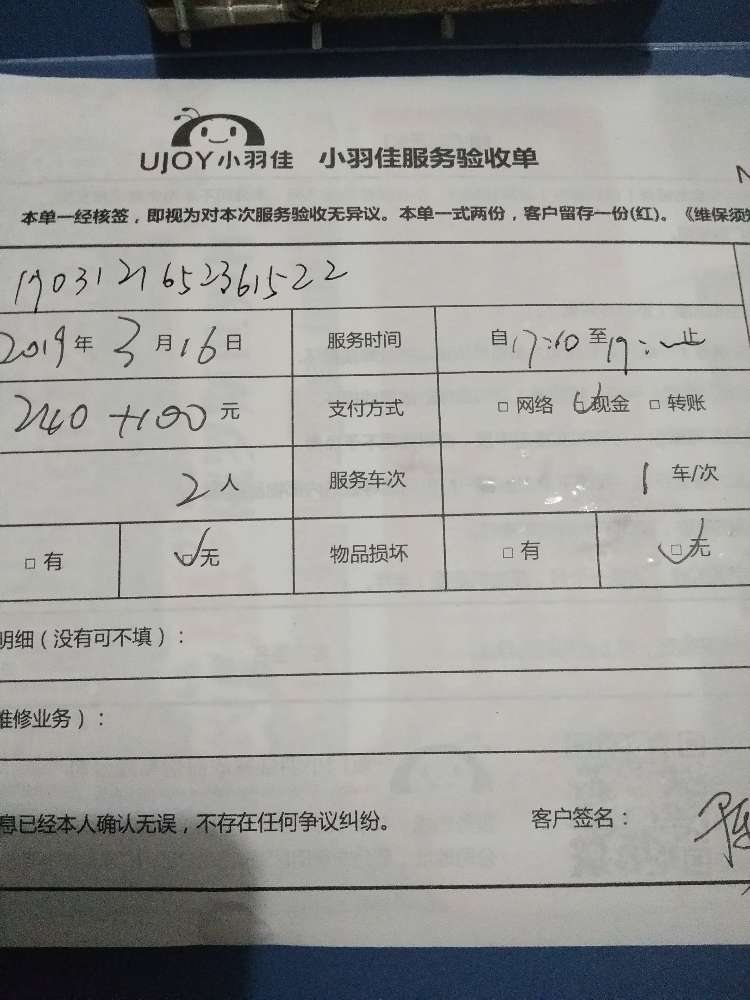 UJOY小羽佳 小羽佳服务验收单
本单一经核签，即视为对本次服务验收无异议。本单一式两份，客户留存一份(红)。《维保须知
1903121652361522
2019年3月16日 服务时间 自17:10至19:止
240+100元 支付方式 □网络 ☑现金 □转账
2人 服务车次 1车/次
□有 ☑无 物品损坏 □有 ☑无
明细（没有可不填）：
维修业务）：
息已经本人确认无误，不存在任何争议纠纷。 客户签名：